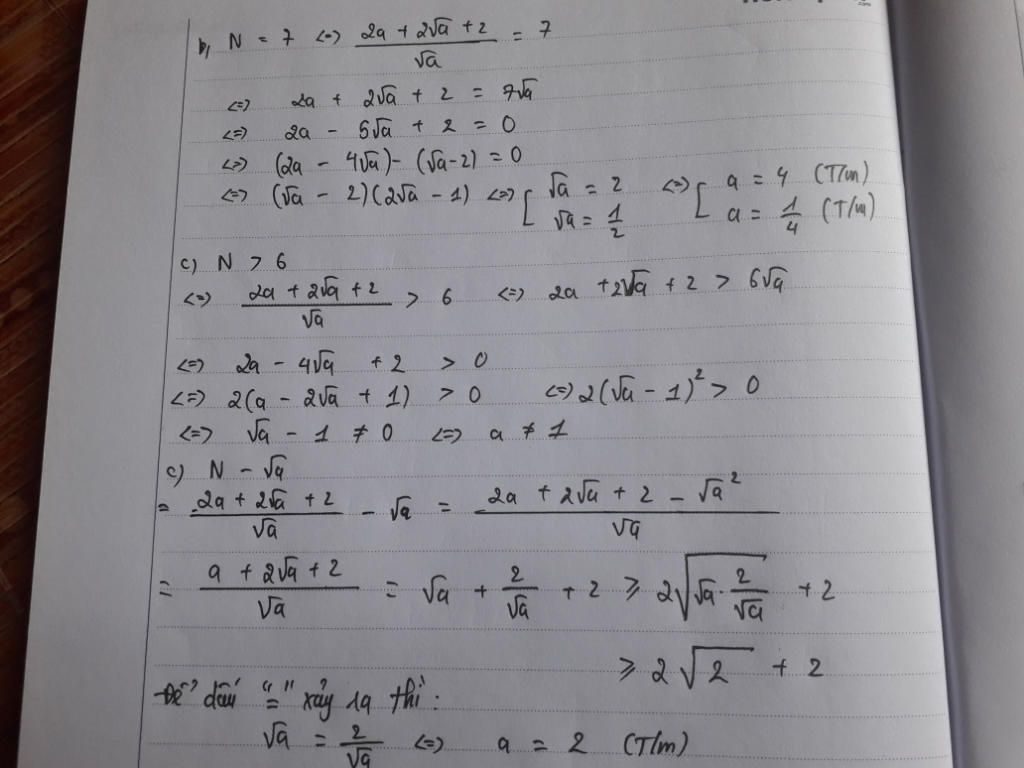 b, N = 7 <=> (2a + 2√a + 2)/√a = 7
<=> 2a + 2√a + 2 = 7√a
<=> 2a - 5√a + 2 = 0
<=> (2a - 4√a) - (√a - 2) = 0
<=> (√a - 2)(2√a - 1) <=> [ √a = 2 <=> [ a = 4 (T/m)
√a = 1/2 a = 1/4 (T/m)
c) N > 6
<=> (2a + 2√a + 2)/√a > 6 <=> 2a + 2√a + 2 > 6√a
<=> 2a - 4√a + 2 > 0
<=> 2(a - 2√a + 1) > 0 <=> 2(√a - 1)² > 0
<=> √a - 1 ≠ 0 <=> a ≠ 1
c) N - √a
= (2a + 2√a + 2)/√a - √a = (2a + 2√a + 2 - √a²)/√a
= (a + 2√a + 2)/√a = √a + 2/√a + 2 ≥ 2√(√a · 2/√a) + 2
≥ 2√2 + 2
Để dấu "=" xảy ra thì:
√a = 2/√a <=> a = 2 (T/m)